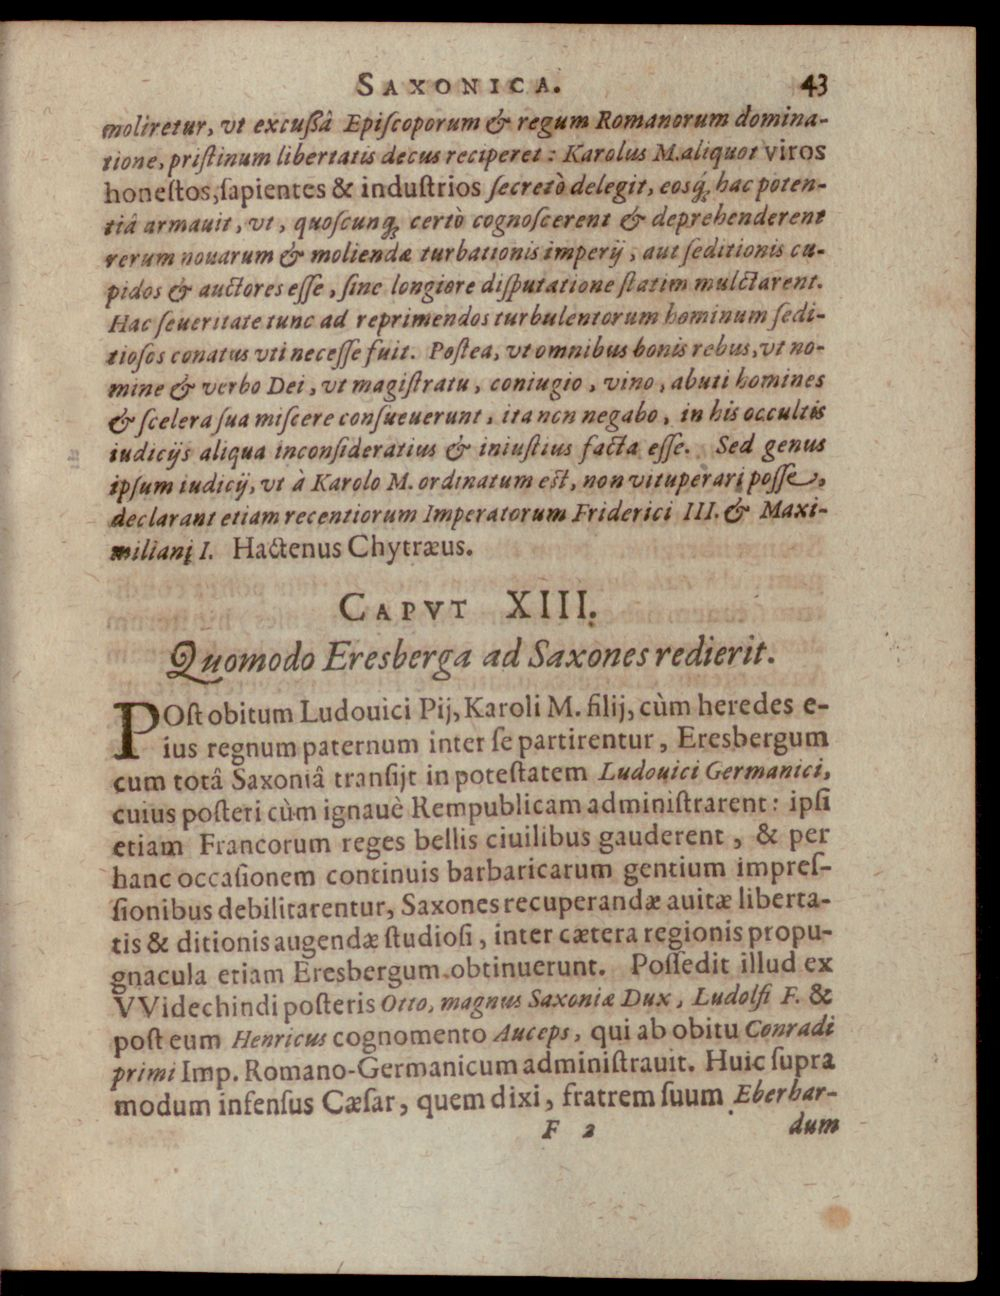 SAXONICA. 43
moliretur, vt excußâ Epiſcoporum & regum Romanorum domina-
tione, priſtinum libertatis decus reciperet : Karolus M. aliquot viros
honeſtos, ſapientes & induſtrios ſecretò delegit, eosq́; hac poten-
tiâ armauit, vt, quoſcunq; certò cognoſcerent & deprehenderent
rerum nouarum & moliendæ turbationis imperij, aut ſeditionis cu-
pidos & auctores eſſe, ſine longiore diſputatione ſtatim mulctarent.
Hac ſeueritate tunc ad reprimendos turbulentorum hominum ſedi-
tioſos conatus vti neceſſe fuit. Poſtea, vt omnibus bonis rebus, vt no-
mine & verbo Dei, vt magiſtratu, coniugio, vino, abuti homines
& ſcelera ſua miſcere conſueuerunt, ita non negabo, in his occultis
iudicijs aliqua inconſideratius & iniuſtius facta eſſe. Sed genus
ipſum iudicij, vt à Karolo M. ordinatum eſt, non vituperari poſſe,
declarant etiam recentiorum Imperatorum Friderici III. & Maxi-
miliani I. Hactenus Chytræus.
CAPVT XIII.
Quomodo Eresberga ad Saxones redierit.
POſt obitum Ludouici Pij, Karoli M. filij, cùm heredes e-
ius regnum paternum inter ſe partirentur, Eresbergum
cum totâ Saxoniâ tranſijt in poteſtatem Ludouici Germanici,
cuius poſteri cùm ignauè Rempublicam adminiſtrarent: ipſi
etiam Francorum reges bellis ciuilibus gauderent, & per
hanc occaſionem continuis barbaricarum gentium impreſ-
ſionibus debilitarentur, Saxones recuperandæ auitæ liberta-
tis & ditionis augendæ ſtudioſi, inter cætera regionis propu-
gnacula etiam Eresbergum obtinuerunt. Poſſedit illud ex
VVidechindi poſteris Otto, magnus Saxoniæ Dux, Ludolfi F. &
poſt eum Henricus cognomento Auceps, qui ab obitu Conradi
primi Imp. Romano-Germanicum adminiſtrauit. Huic ſupra
modum infenſus Cæſar, quem dixi, fratrem ſuum Eberhar-
F 2 dum